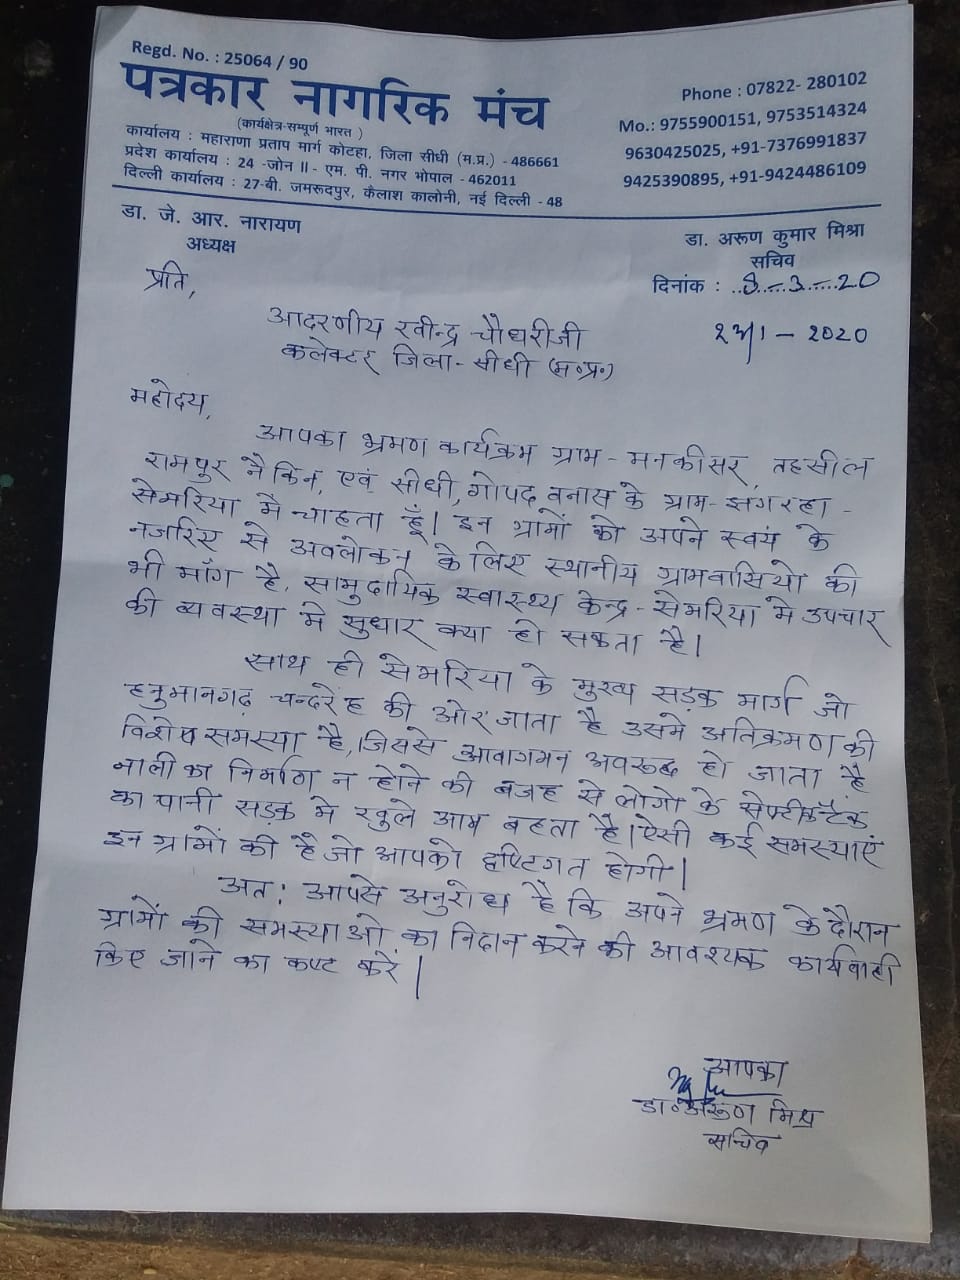 Regd. No. : 25064 / 90
पत्रकार नागरिक मंच
(कार्यक्षेत्र-सम्पूर्ण भारत )
कार्यालय : महाराणा प्रताप मार्ग कोटहा, जिला सीधी (म.प्र.) - 486661
प्रदेश कार्यालय : 24 -जोन II - एम. पी. नगर भोपाल - 462011
दिल्ली कार्यालय : 27-बी. जमरूदपुर, कैलाश कालोनी, नई दिल्ली - 48
Phone : 07822- 280102
Mo.: 9755900151, 9753514324
9630425025, +91-7376991837
9425390895, +91-9424486109
डा. जे. आर. नारायण
अध्यक्ष
डा. अरूण कुमार मिश्रा
सचिव
दिनांक : ..8....3.....20
प्रति,
2020
आदरणीय रवीन्द्र चौधरीजी
कलेक्टर जिला- सीधी (म०प्र०)
महोदय,
आपका भ्रमण कार्यक्रम ग्राम- मनकीसर, तहसील
रामपुर नैकिन, एवं सीधी, गोपद वनास के ग्राम- झगरहा -
सेमरिया मे चाहता हूँ। इन ग्रामों को अपने स्वयं के
नजरिए से अवलोकन के लिए स्थानीय ग्रामवासियो की
भी माँग है, सामुदायिक स्वास्थ्य केन्द्र- सेमरिया मे उपचार
की व्यवस्था मे सुधार क्या हो सकता है।
साथ ही सेमरिया के मुख्य सड़क मार्ग जो
हनुमानगढ़ चन्दरेह की ओर जाता है उसमे अतिक्रमण की
विशेष समस्या है, जिससे आवागमन अवरूद्ध हो जाता है
नाली का निर्माण न होने की बजह से लोगो के सेप्टीकटैंक
का पानी सड़क मे खुले आम बहता है। ऐसी कई समस्याएं
इन ग्रामों की है जो आपको दृष्टिगत होगी।
अत: आपसे अनुरोध है कि अपने भ्रमण के दौरान
ग्रामों की समस्याओ का निदान करने की आवश्यक कार्यवाही
किए जाने का कष्ट करें।
आपका
डा० अरूण मिश्र
सचिव